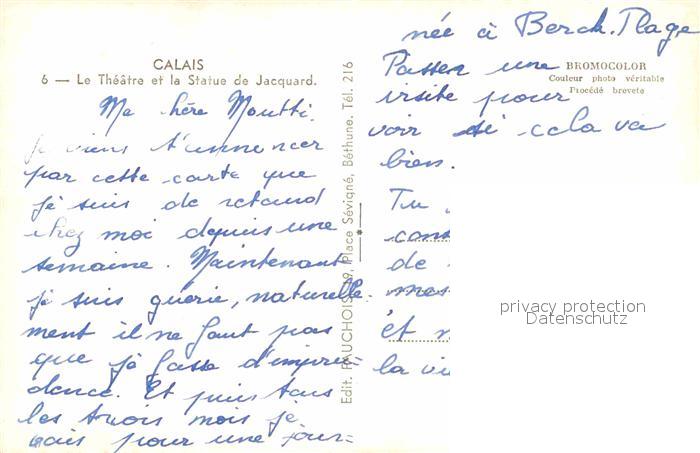 CALAIS
6 — Le Théâtre et la Statue de Jacquard.
Ma chère Moutti.
Je viens t'annoncer
par cette carte que
je suis de retour
chez moi depuis une
semaine. Maintenant
je suis guérie, naturelle-
ment il ne faut pas
que je fasse d'impru-
dence. Et puis tous
les trois mois je
vais pour une jour-
Edit. FAUCHOIS, 9, Place Sévigné, Béthune. Tél. 216
née à Berck-Plage
Passer une
visite pour
voir si cela va
bien.
BROMOCOLOR
Couleur photo véritable
Procédé breveté
Tu
cons
de
mes
et
la vi
privacy protection
Datenschutz